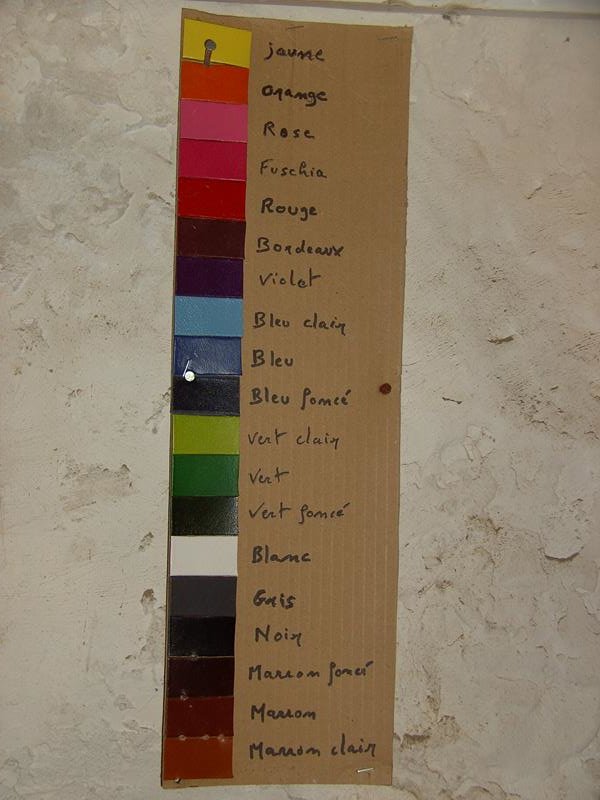 jaune
orange
Rose
Fuschia
Rouge
Bordeaux
Violet
Bleu clair
Bleu
Bleu foncé
Vert clair
Vert
Vert foncé
Blanc
Gris
Noir
Marron foncé
Marron
Marron clair